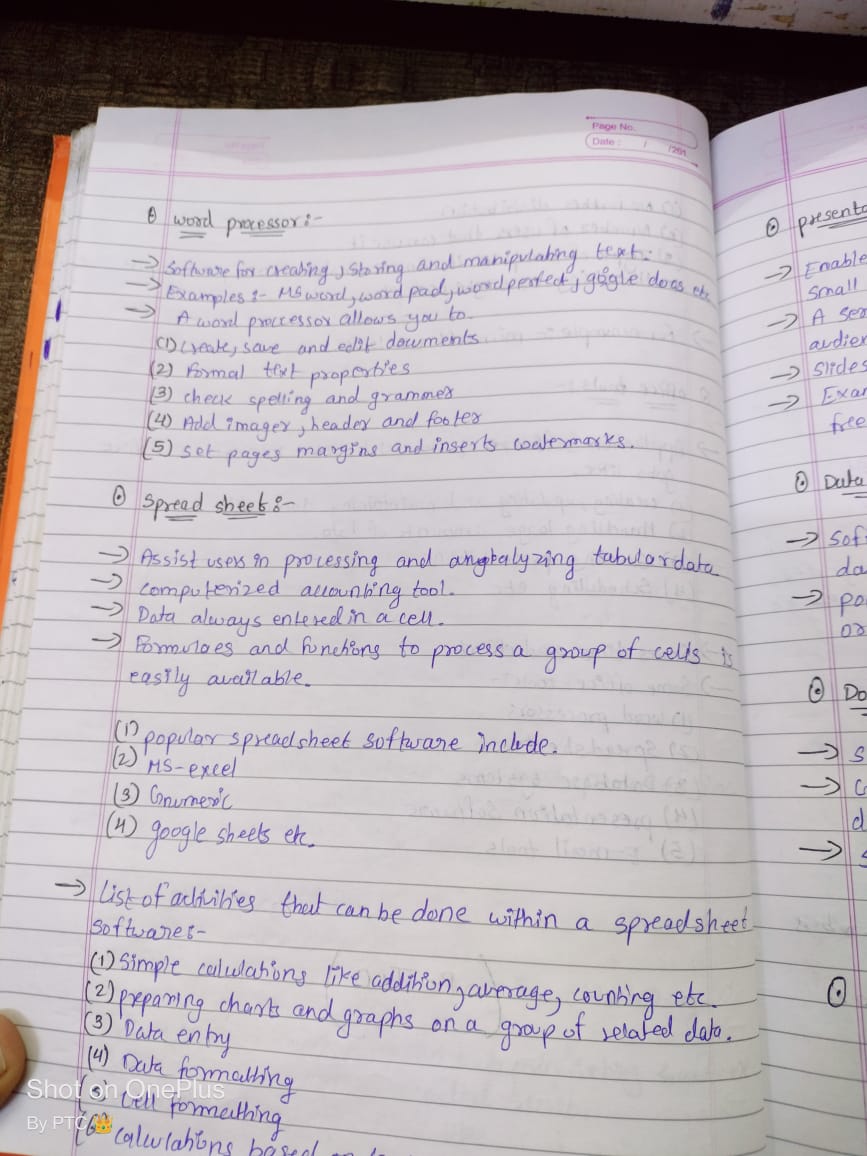 Page No.
Date : / /201
word processor :-
→ Software for creating, storing and manipulating text.
→ Examples :- MS word, word pad, wordperfect, google docs etc
→ A word proccessor allows you to.
(1) create, save and edit documents
(2) Formal text properties
(3) check spelling and grammer
(4) Add images, header and footer
(5) set pages margins and inserts watermarks.
Spread sheet :-
→ Assist users in processing and tabular data
→ computerized accounting tool.
→ Data always entered in a cell.
→ Formulaes and functions to process a group of cells is
easily available.
(1) popular spreadsheet software include.
(2) MS-excel
(3) Gnumeric
(4) google sheets etc.
→ List of activities that can be done within a spreadsheet
software :-
(1) Simple calculations like addition, average, counting etc.
(2) preparing charts and graphs on a group of related data.
(3) Data entry
(4) Data formatting
(5) Cell formatting
(6) calculations based
Shot on OnePlus
By PTC
presenta
→ Enable
small
→ A se
audien
→ Slides
→ Exam
free
Data
→ Sof
da
→ po
or
Do
→ S
→ C
d
→